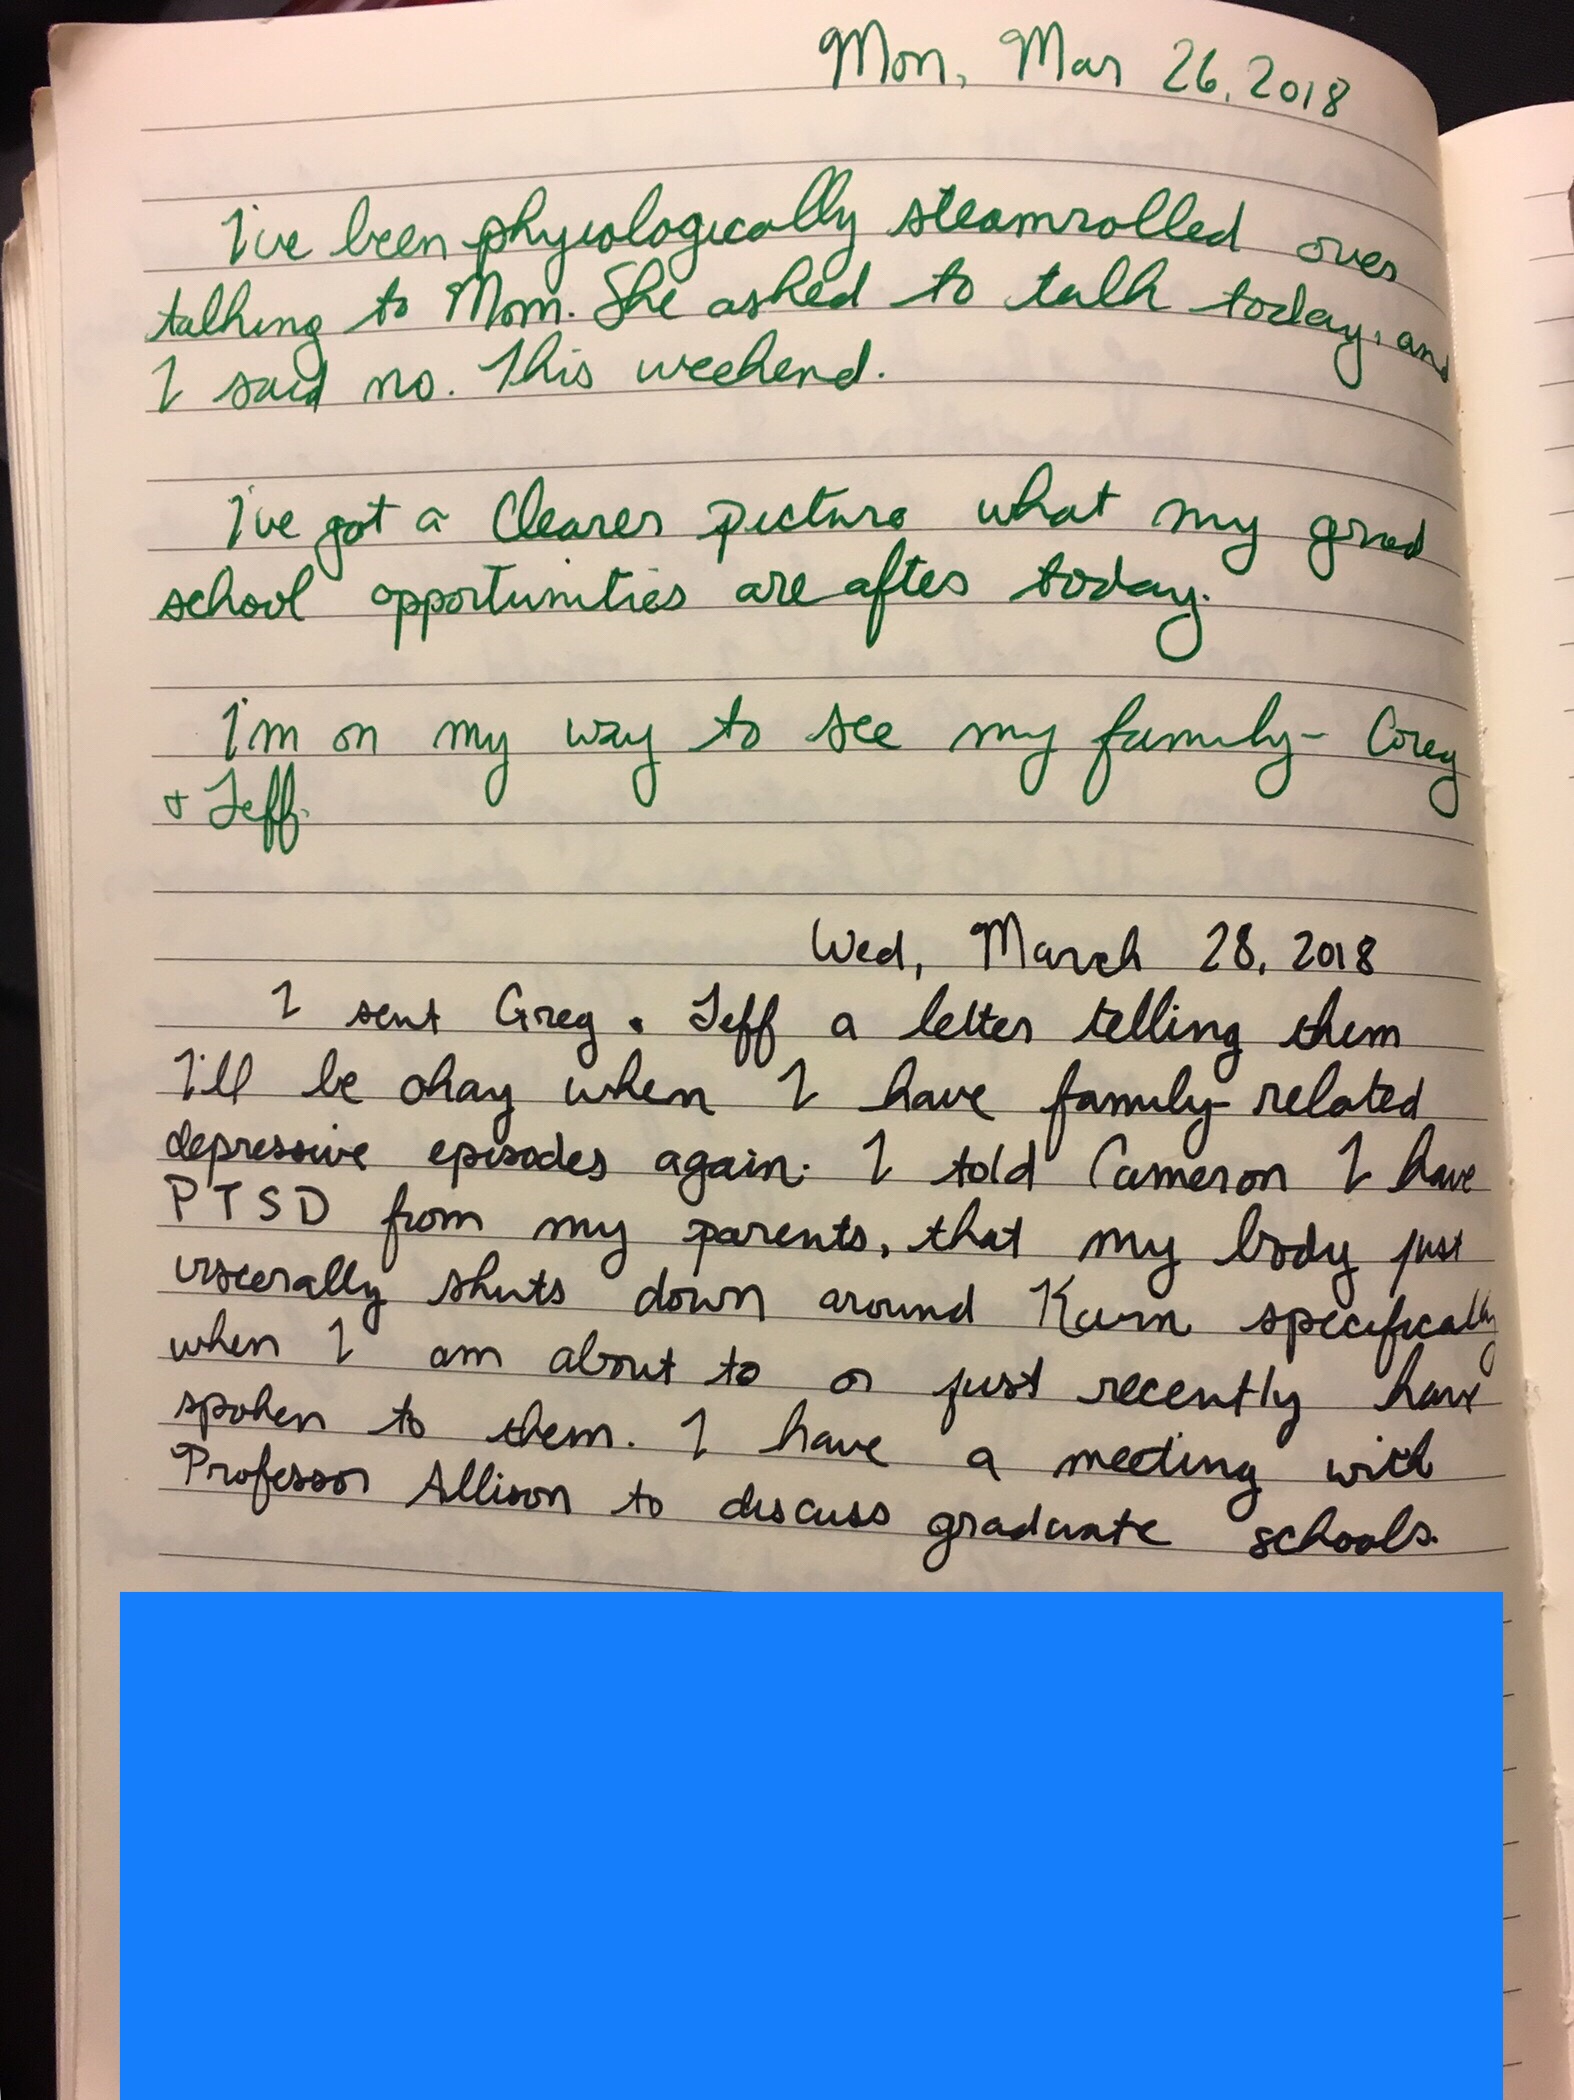 Mon, Mar 26, 2018
I've been phyiologically steamrolled over
talking to Mom. She asked to talk today, and
I said no. This weekend.
I've got a clearer picture what my grad
school opportunities are after today.
I'm on my way to see my family- Corey
+ Jeff.
Wed, March 28, 2018
I sent Greg + Jeff a letter telling them
I'll be okay when I have family-related
depressive episodes again. I told Cameron I have
PTSD from my parents, that my body just
viscerally shuts down around specifically
when I am about to or just recently have
spoken to them. I have a meeting with
Professor Allison to discuss graduate schools.